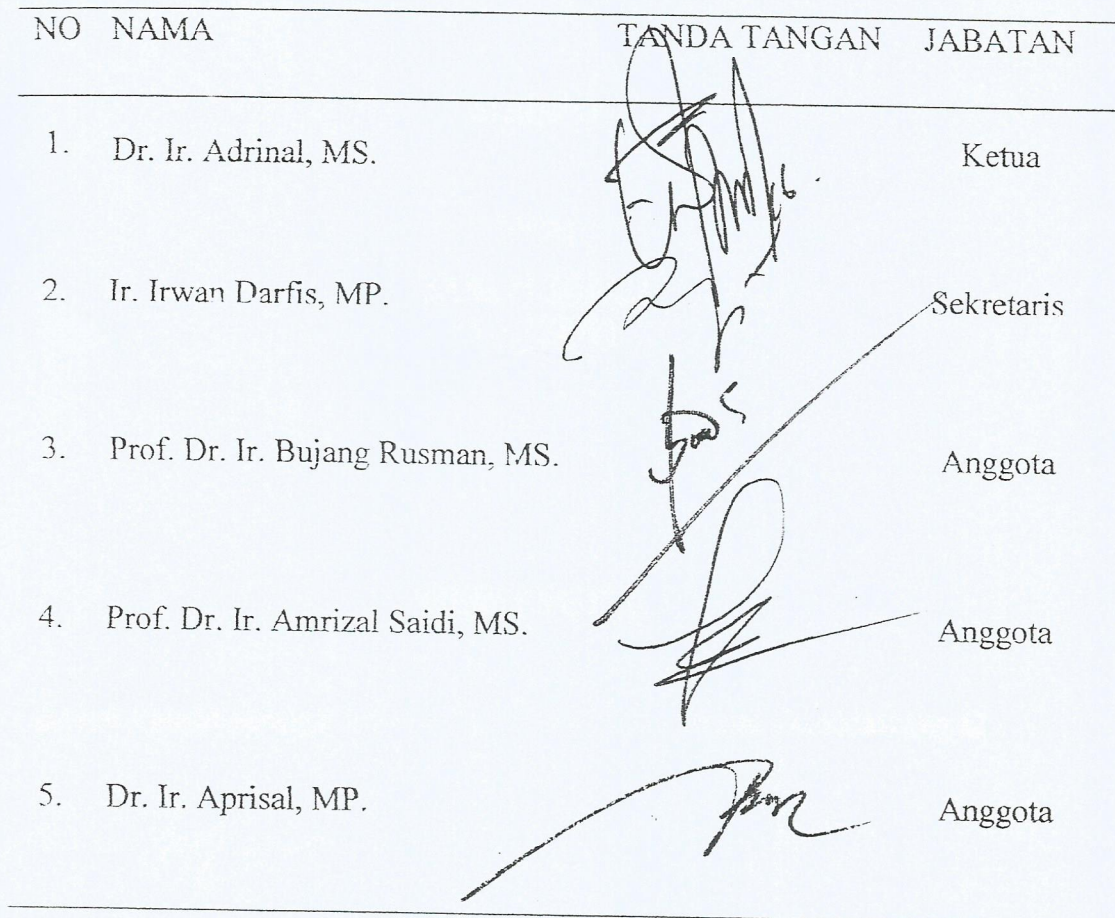 NO NAMA TANDA TANGAN JABATAN
1. Dr. Ir. Adrinal, MS. Ketua
2. Ir. Irwan Darfis, MP. Sekretaris
3. Prof. Dr. Ir. Bujang Rusman, MS. Anggota
4. Prof. Dr. Ir. Amrizal Saidi, MS. Anggota
5. Dr. Ir. Aprisal, MP. Anggota